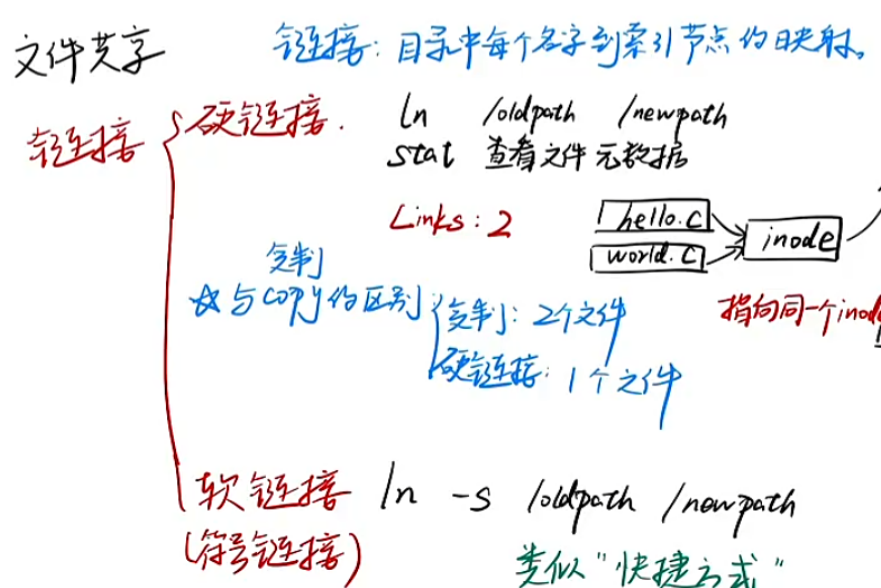 文件共享
链接：目录中每个名字到索引节点的映射。
链接
硬链接.
ln /oldpath /newpath
stat 查看文件元数据
Links: 2
hello.c
world.c
inode
指向同一个inode
复制
☆与copy的区别
复制：2个文件
硬链接：1个文件
软链接 ln -s /oldpath /newpath
(符号链接)
类似“快捷方式”